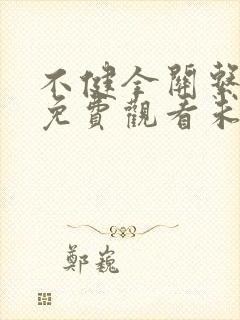 不健全關繫
免費觀看未
鄭巍